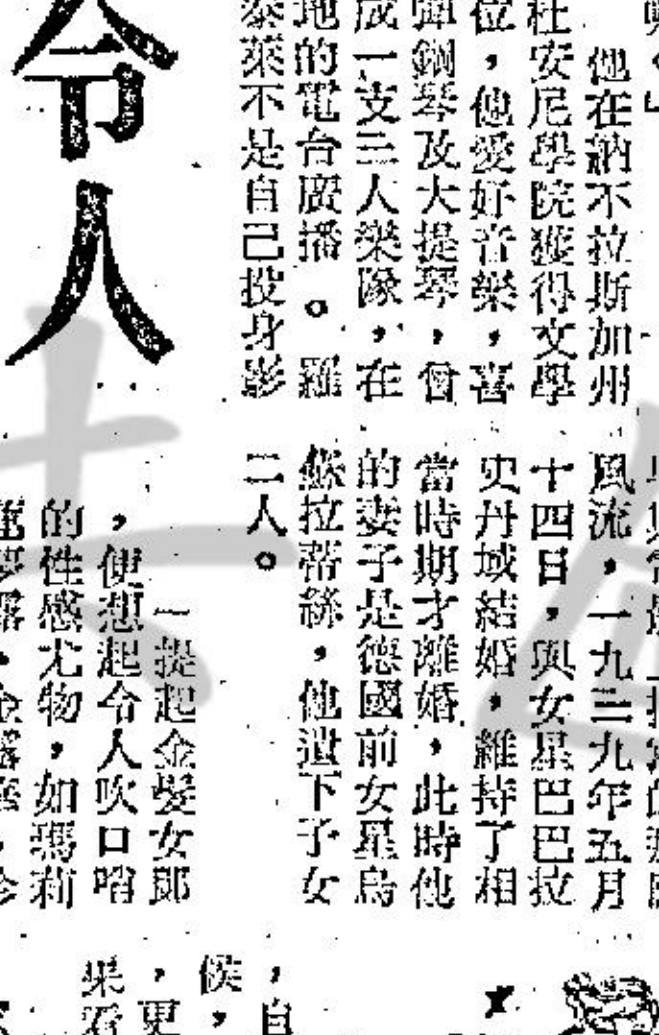 他在訥不拉斯加州
杜安尼學院獲得文學
位，他愛好音樂，喜
彈鋼琴及大提琴，曾
成一支三人樂隊，在
地的電台廣播。羅
泰萊不是自己投身影
風流，一九三九年五月
十四日，與女星巴巴拉
史丹域結婚，維持了相
當時期才離婚，此時他
的妻子是德國前女星烏
蘇拉蒂絲，他遺下子女
二人。
令人
一提起金髮女郎
，便想起令人吹口哨
的性感尤物，如瑪莉
，自
侯，
，更
果看